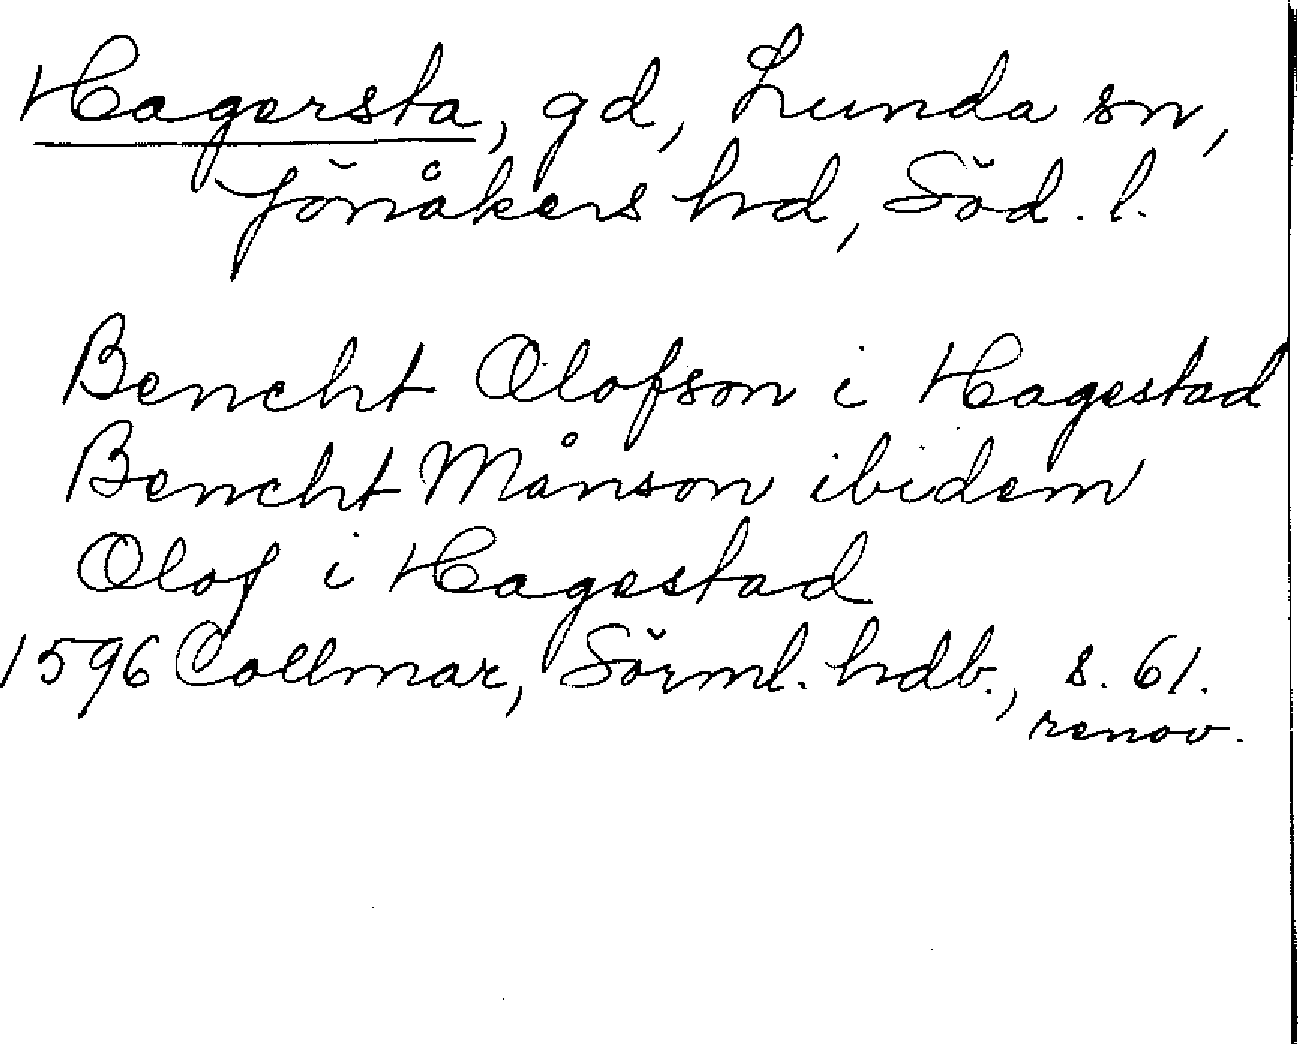 Hagersta, gd, Lunda sn,
Jönåkers hd, Söd. l.
Bencht Olofson i Hagestad
Bencht Månson ibidem
Olof i Hagestad
1596 Collmar, Sörml. hdb., s. 61.
renov.